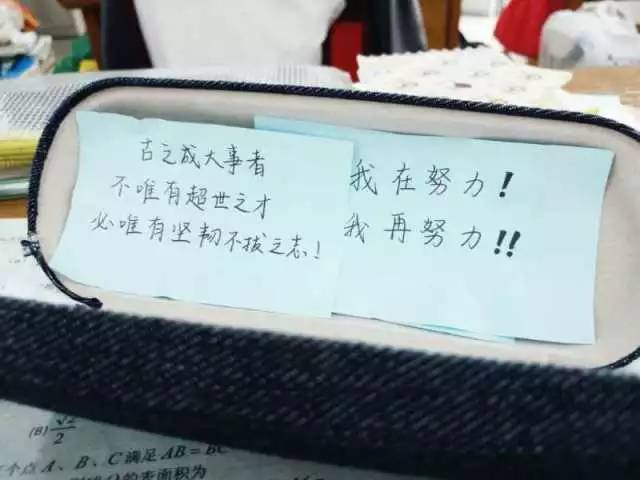 古之成大事者
不唯有超世之才
必唯有坚韧不拔之志！
我在努力！
我再努力！！
(B) √2/2
个点A、B、C满足AB=BC
的表面积为